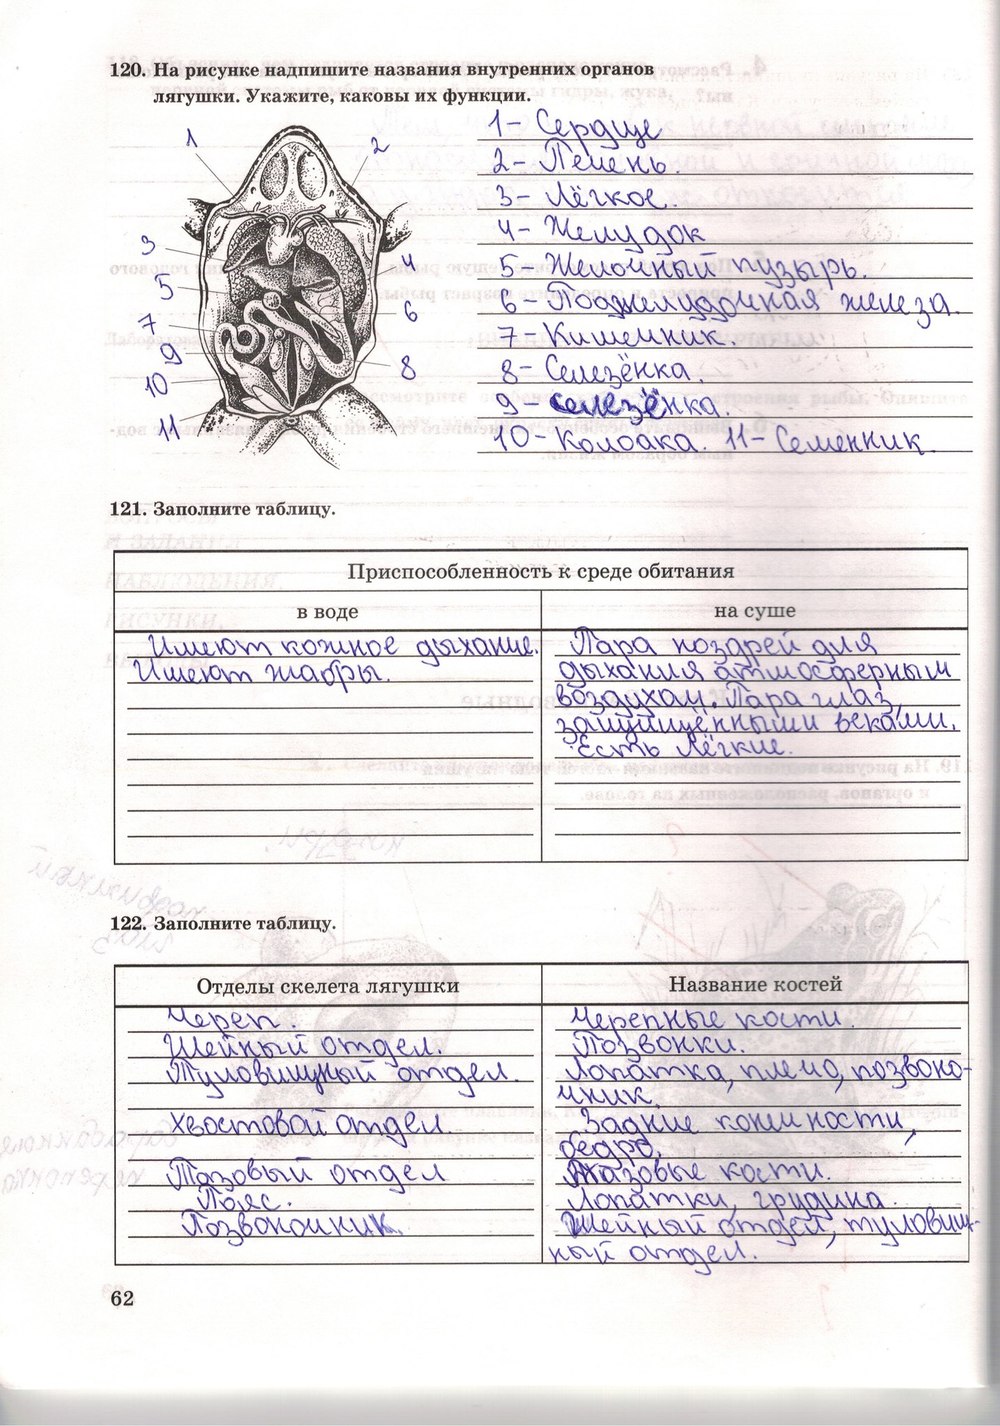 120. На рисунке надпишите названия внутренних органов
лягушки. Укажите, каковы их функции.
1
2
3
4
5
6
7
8
9
10
11
1- Сердце
2- Печень.
3- Лёгкое.
4- Желудок
5- Желочный пузырь.
6- Поджелудочная железа.
7- Кишечник.
8- Селезёнка.
9- селезёнка.
10- Колоака. 11- Семенник.
121. Заполните таблицу.
Приспособленность к среде обитания
в воде
на суше
Имеют кожное дыхание.
Имеют жабры.
Пара ноздрей для
дыхания атмосферным
воздухом. Пара глаз,
защищёнными веками.
Есть лёгкие.
122. Заполните таблицу.
Отделы скелета лягушки
Название костей
Череп.
Черепные кости.
Шейный отдел.
Позвонки.
Туловищный отдел.
Лопатка, плечо, позвоно-
чник.
хвостовой отдел.
Задние конечности,
бедро.
Тазовый отдел
Тазовые кости.
Пояс.
Лопатки, грудина.
Позвоночник
Шейный отдел, туловищ-
ный отдел.
62